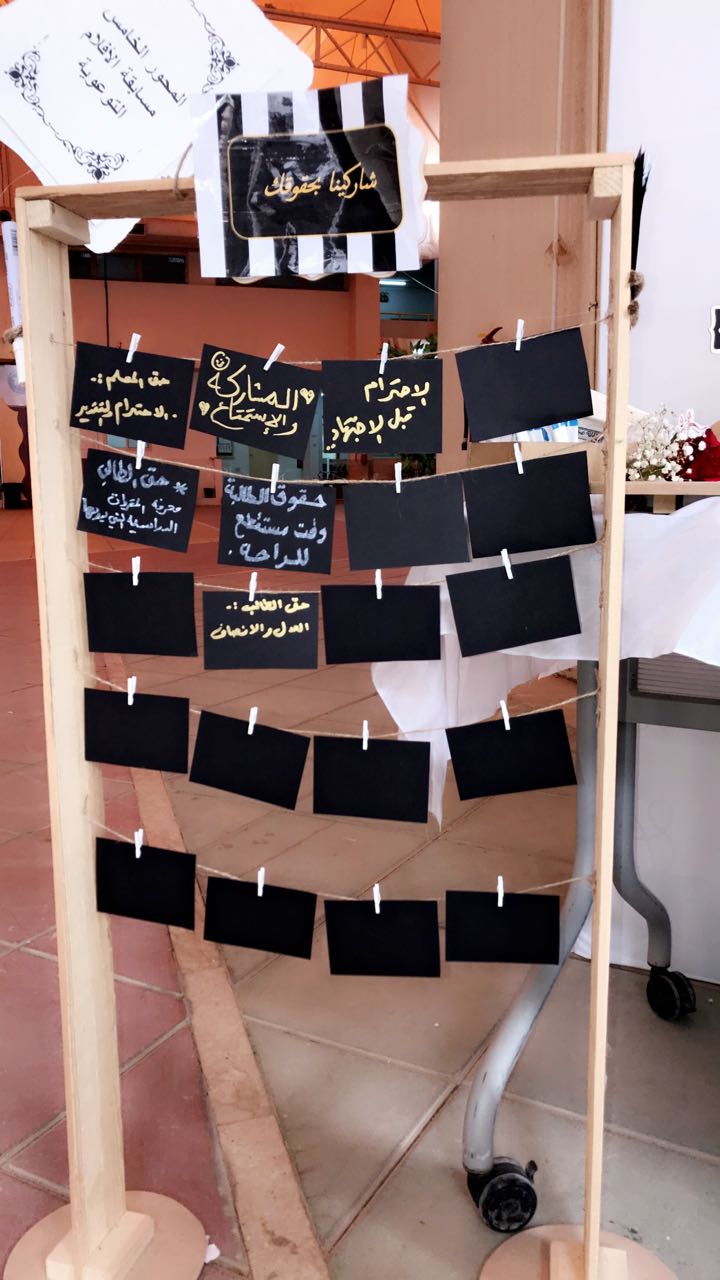 المحور الخامس
مسابقة الأفلام
التوعوية
شاركينا بحقوقك
حق المعلم :-
الاحترام والتقدير.
المشاركة
والإستمتاع
الاحترام
قبل الاجتهاد
* حق الطالب
معرفة المقررات
الدراسية التي يدرسها
حقوق الطالبة
وقت مستقطع
للراحة.
حق الطالب :-
العدل والانصاف